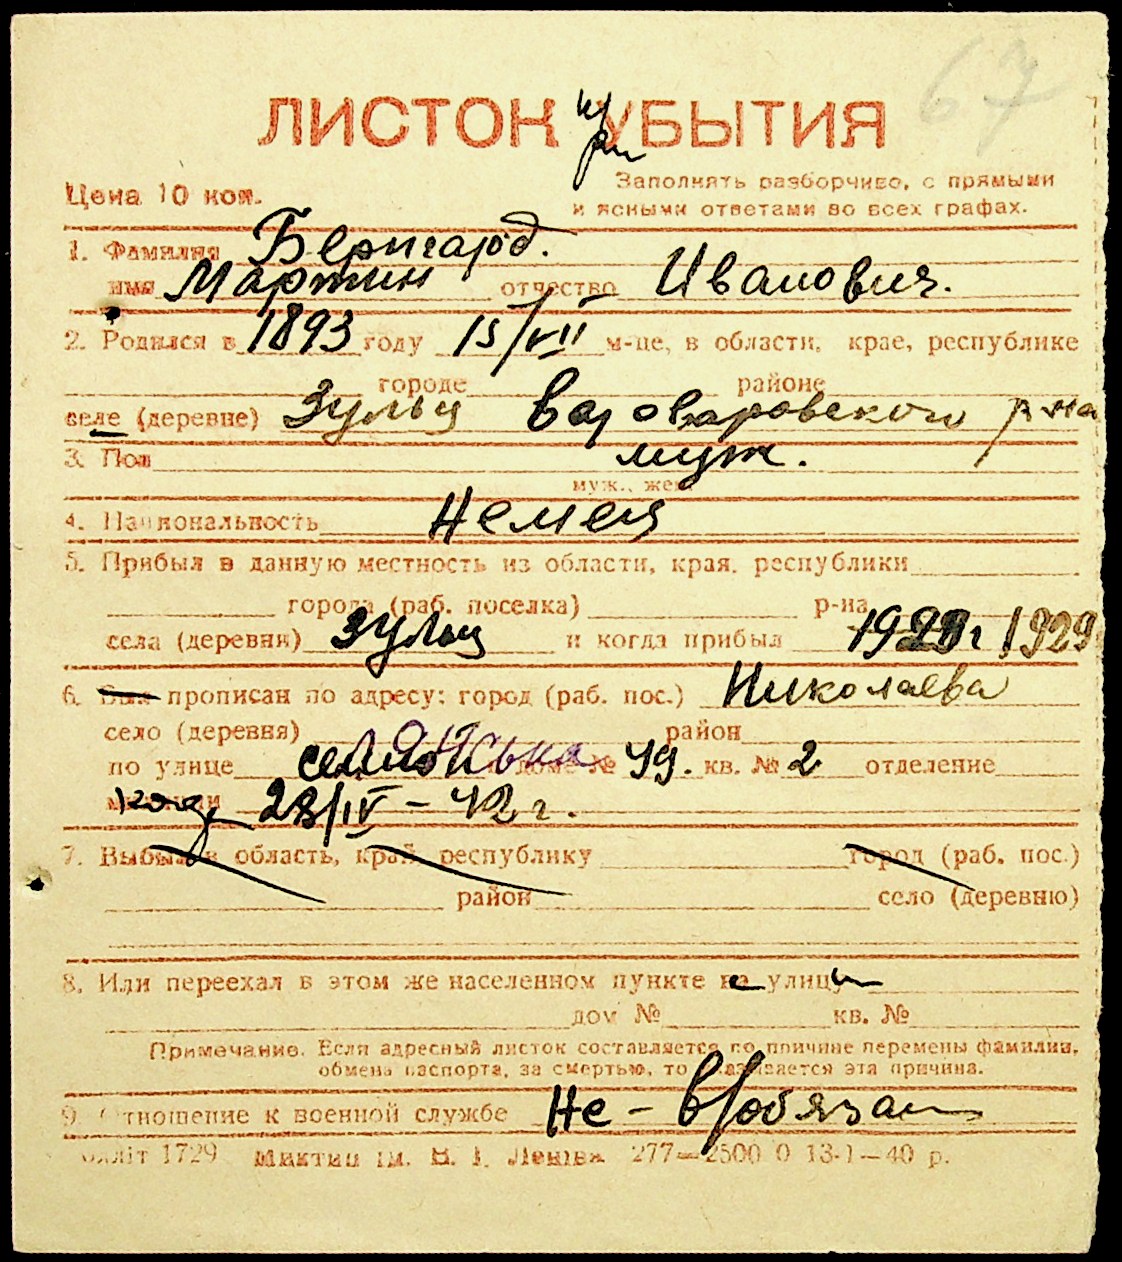 67
ЛИСТОК УБЫТИЯ
при
Цена 10 коп.
Заполнять разборчиво, с прямыми
и ясными ответами во всех графах.
1. Фамилия Бернгард.
имя Мартин отчество Иванович.
2. Родился в 1893 году 15/VII м-це, в области, крае, республике
городе районе
селе (деревне) Зульц Варваровского р-на
3. Пол муж.
муж., жен.
4. Национальность Немец
5. Прибыл в данную местность из области, края, республики
города (раб. поселка) р-на
села (деревни) Зульц и когда прибыл 1929г 1929
6. Был прописан по адресу: город (раб. пос.) Николаева
село (деревня) район
по улице доме № 49. кв. № 2 отделение
милиции 28/IV – 42 г.
7. Выбыл в область, край, республику город (раб. пос.)
район село (деревню)
8. Или переехал в этом же населенном пункте на улицу
дом № кв. №
Примечание. Если адресный листок составляется по причине перемены фамилии,
обмена паспорта, за смертью, то указывается эта причина.
9. Отношение к военной службе Не – в/обязан
Облліт 1729 Миктип ім. В. І. Леніна 277—2500 0 13-1—40 р.